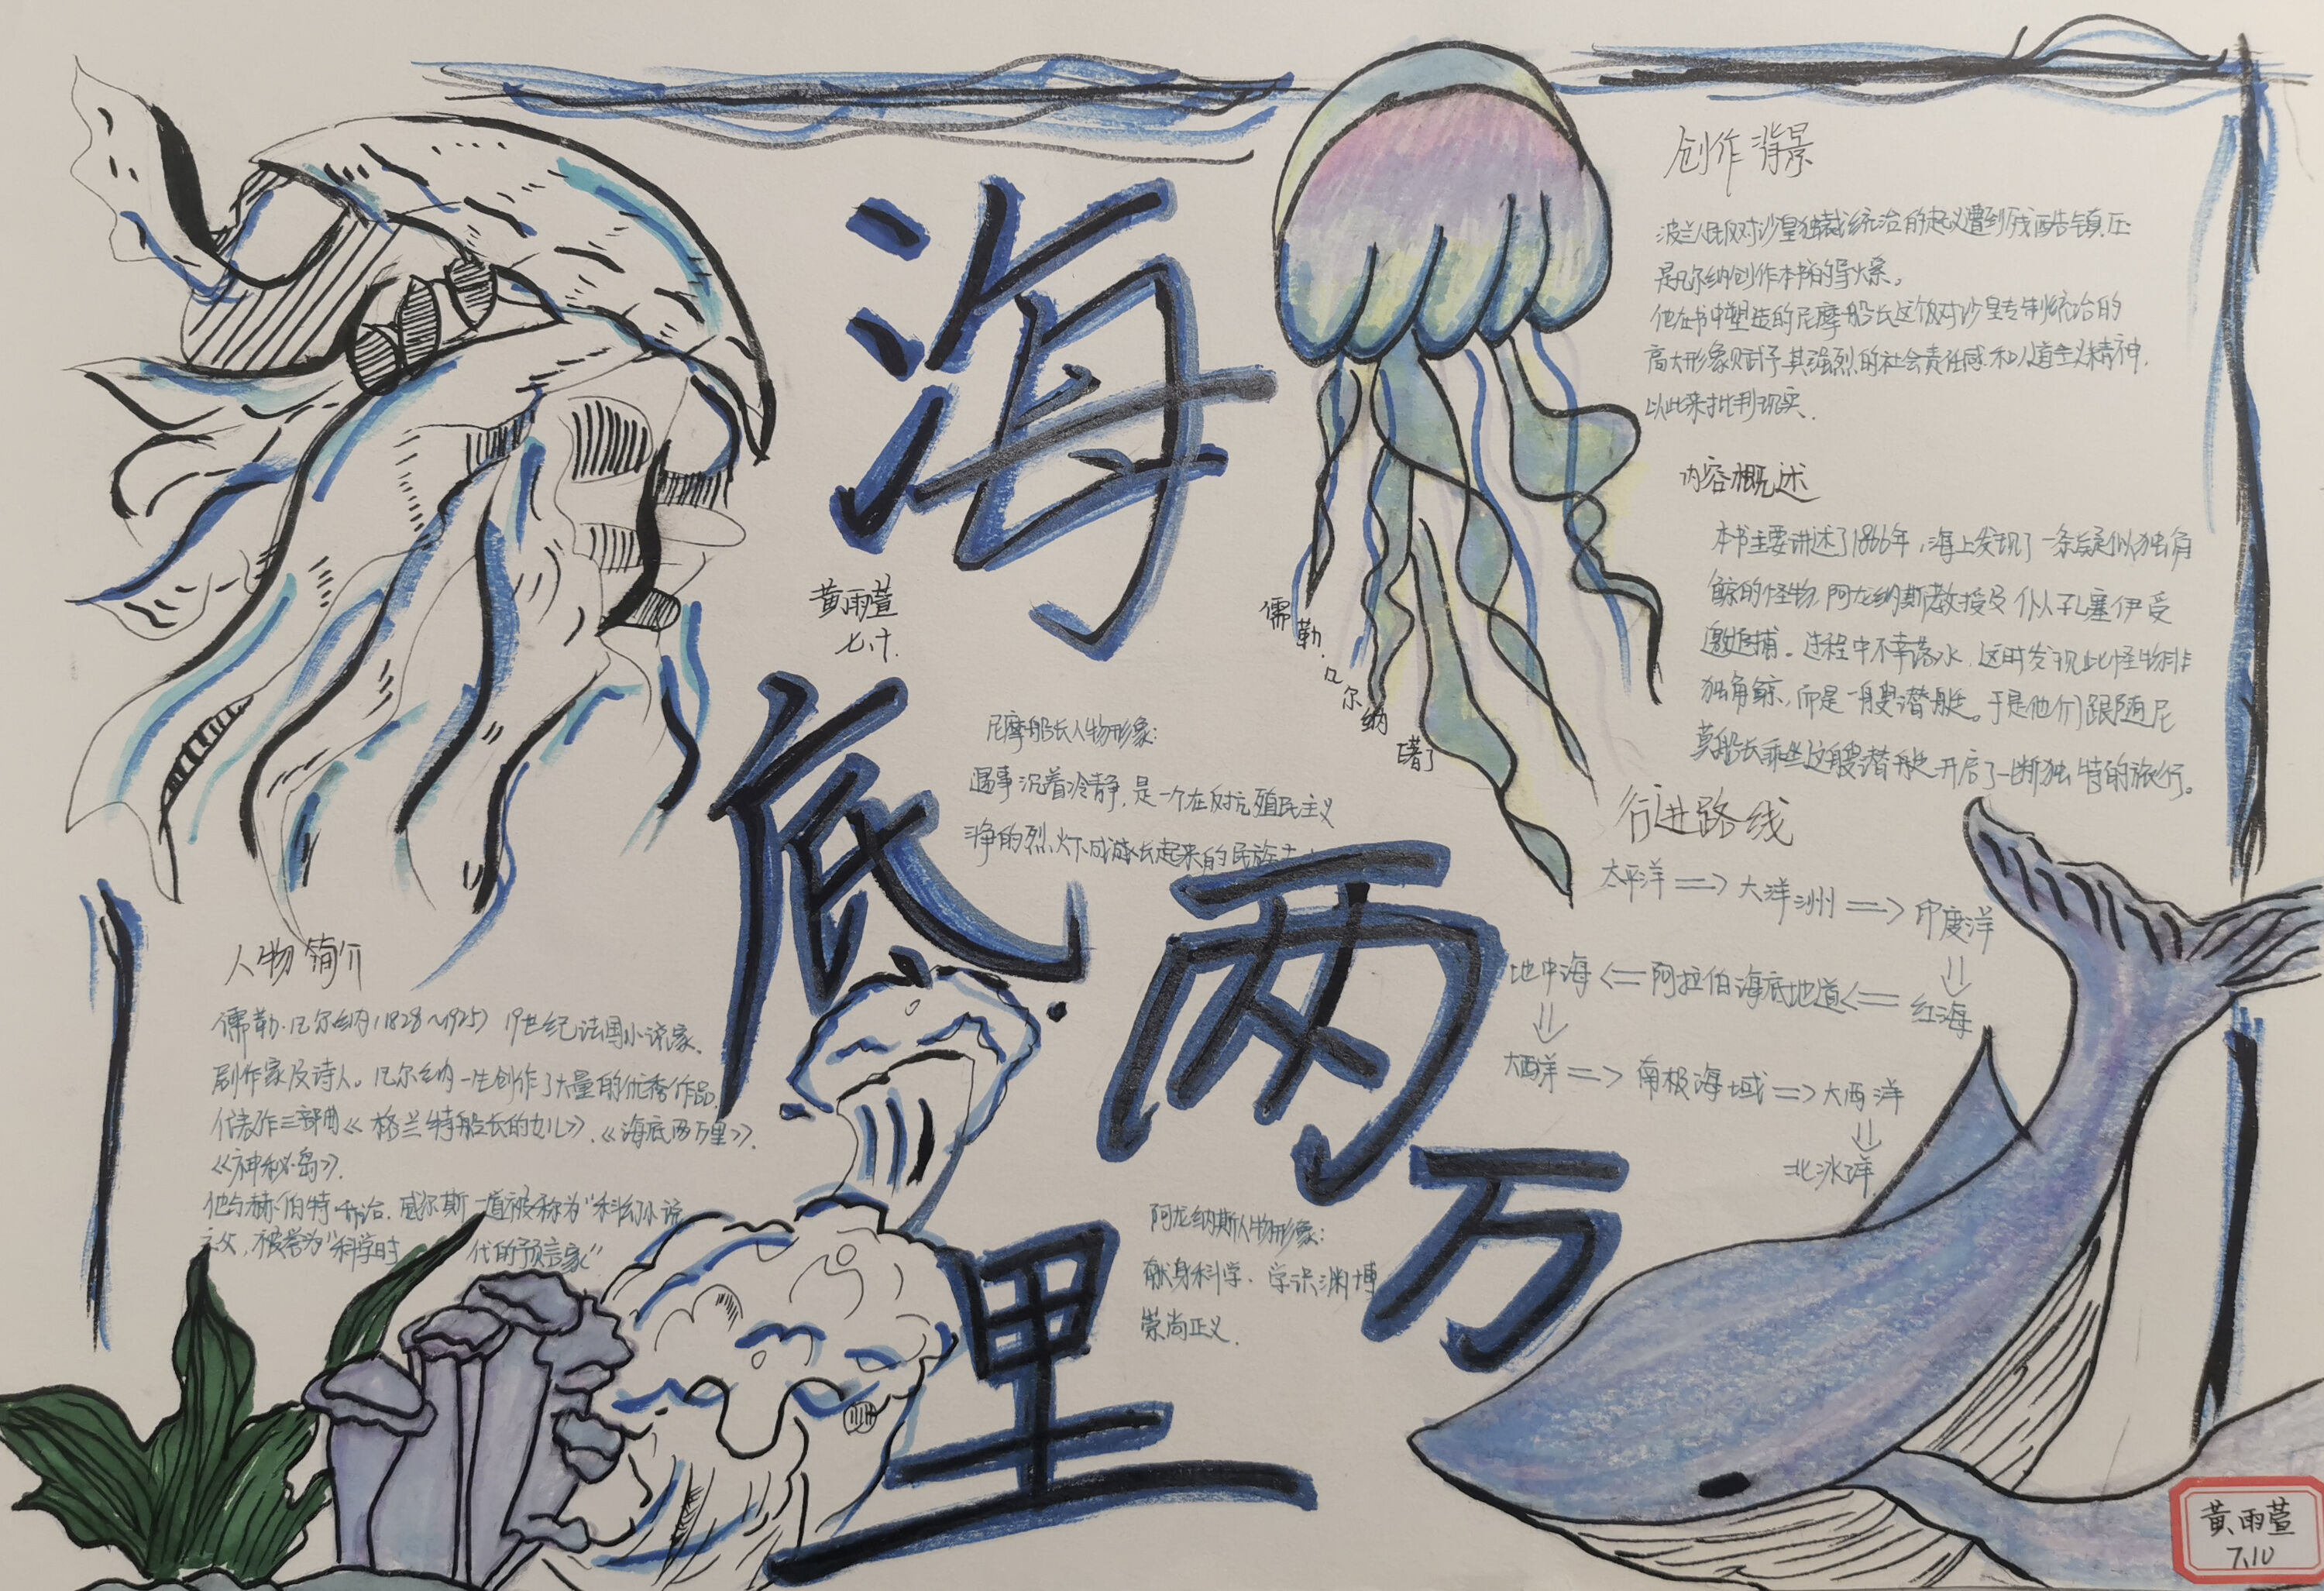 海
底
两
万
里
黄雨萱
七.十.
儒勒.凡尔纳 著
创作背景
波兰人民反对沙皇独裁统治的起义遭到残酷镇压
是凡尔纳创作本书的导火索。
他在书中塑造的尼摩船长这个反对沙皇专制统治的
高大形象赋予其强烈的社会责任感和人道主义精神.
以此来批判现实.
内容概述
本书主要讲述了1866年,海上发现了一条疑似独角
鲸的怪物,阿龙纳斯教授及仆人孔塞伊受
邀追捕。过程中不幸落水,这时发现此怪物非
独角鲸,而是一艘潜艇。于是他们跟随尼
莫船长乘坐这艘潜艇开启了一断独特的旅行。
行进路线
太平洋 => 大洋洲 => 印度洋
地中海 <= 阿拉伯海底地道 <= 红海
大西洋 => 南极海域 => 大西洋
北冰洋
尼摩船长人物形象:
遇事沉着冷静,是一个在反抗殖民主义
斗争的烈火下成长起来的民族
阿龙纳斯人物形象:
献身科学. 学识渊博
崇尚正义.
人物简介
儒勒.凡尔纳(1828~1925) 19世纪法国小说家.
剧作家及诗人。凡尔纳一生创作了大量的优秀作品.
代表作三部曲《格兰特船长的女儿》.《海底两万里》.
《神秘岛》.
他与赫伯特.乔治.威尔斯一道被称为"科幻小说
之父,被誉为"科学时 代的预言家"
黄雨萱
7.10